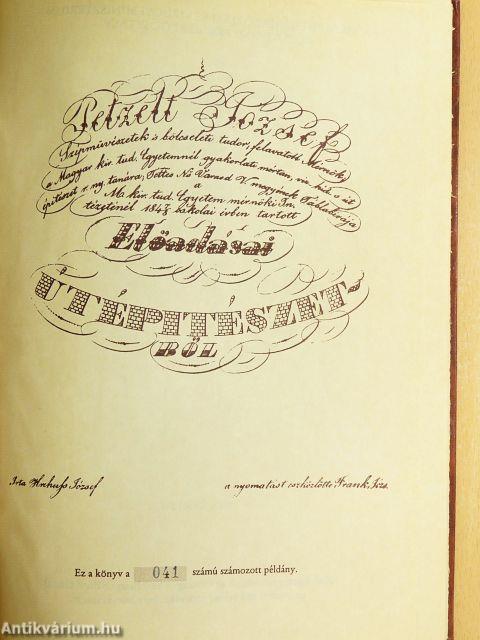 Petzelt József
Szépművészetek s bölcseleti tudor, felavatott Mérnök,
a Magyar kir. tud. Egyetemnél gyakorlati mértan, víz, híd, s út
építészet r. ny. tanára, Tettes Ns Varasd V. megyének Táblabírája
a
M. kir. tud. Egyetem mérnöki In
tézeténél 184 iskolai évben tartott
Előadásai
ÚTÉPÍTÉSZET-
BŐL
Irta József
a nyomatást eszközötte Frank, Józs.
Ez a könyv a 041 számú számozott példány.
Antikvárium.hu